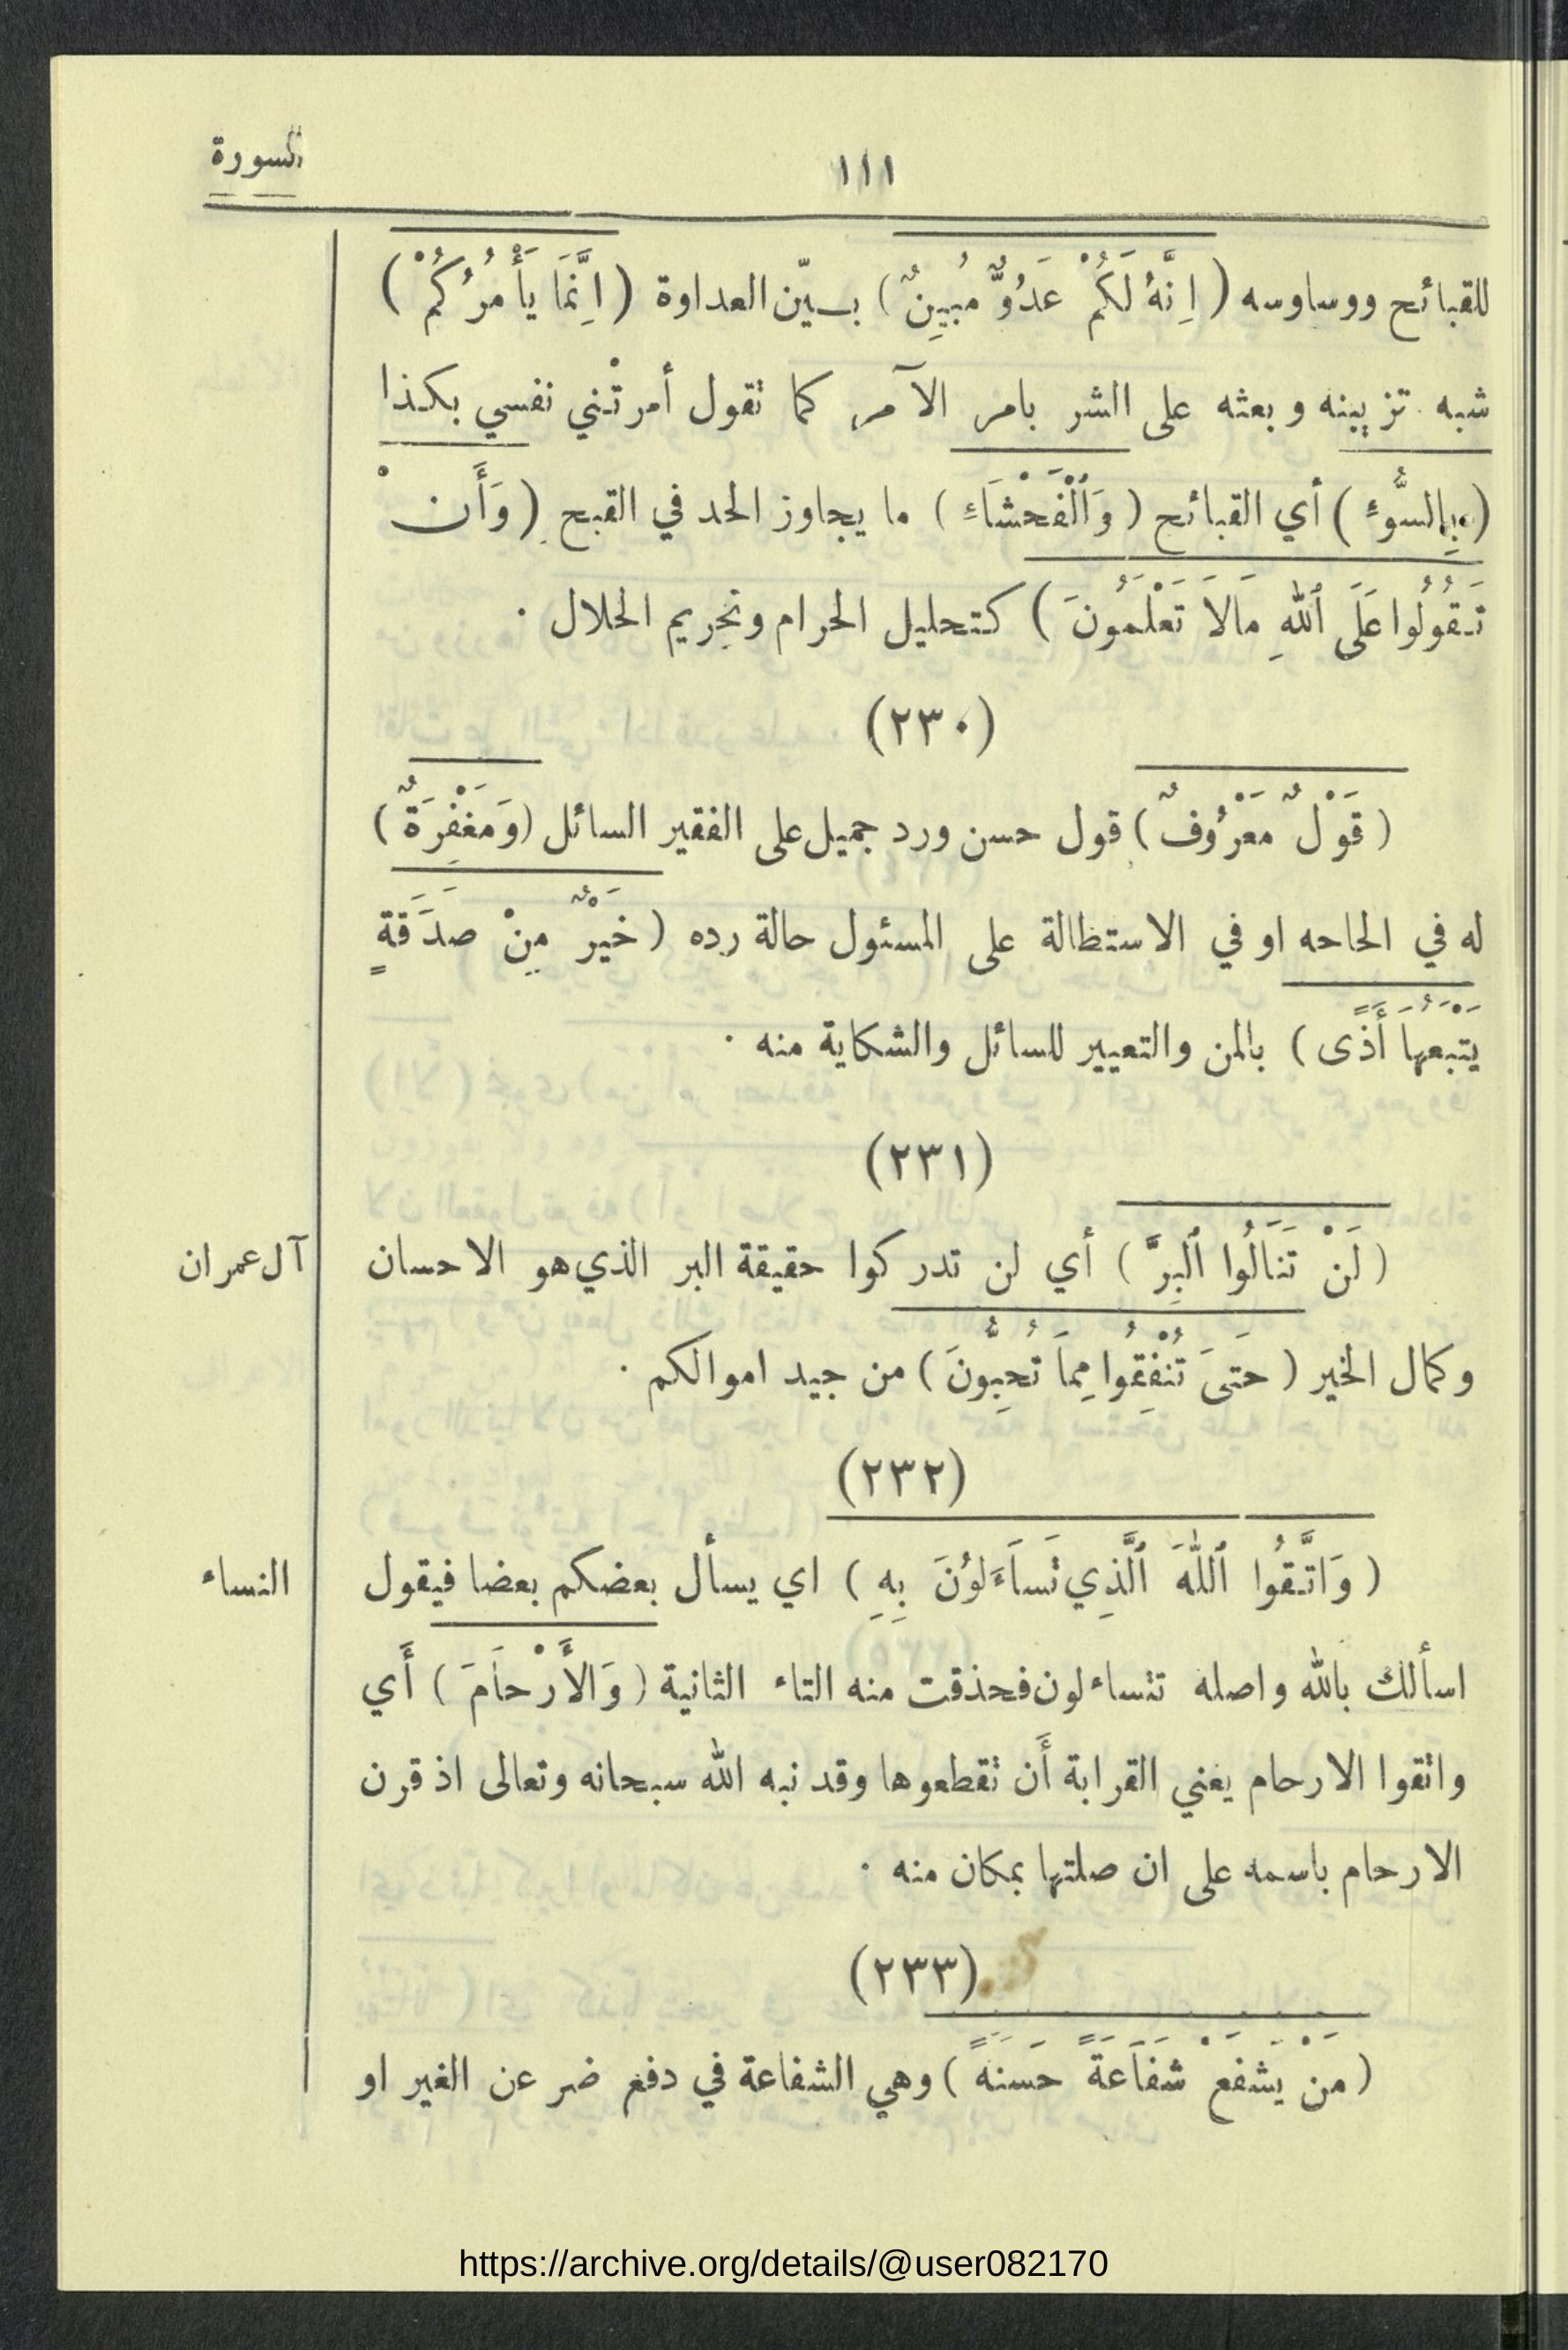 ١١١
السورة
للقبائح ووساوسه ( اِنَّهُ لَكُمْ عَدُوٌّ مُبِينٌ ) بيّن العداوة ( اِنَّمَا يَأْمُرُكُمْ )
شبه تزيينه وبعثه على الشر بامر الآمر كما تقول أمرتْني نفسي بكذا
( بِالسُّوءِ ) أي القبائح ( وَٱلْفَحْشَاءِ ) ما يجاوز الحد في القبح ( وَأَنْ
تَقُولُوا عَلَى ٱللهِ مَالاَ تَعْلَمُونَ ) كتحليل الحرام وتحريم الحلال .
(٢٣٠)
( قَوْلٌ مَعْرُوفٌ ) قول حسن ورد جميل على الفقير السائل ( وَمَغْفِرَةٌ )
له في الحاحه او في الاستظالة على المسئول حالة رده ( خَيْرٌ مِنْ صَدَقَةٍ
يَتْبَعُهَا أَذًى ) بالمن والتعيير للسائل والشكاية منه .
(٢٣١)
( لَنْ تَنَالُوا ٱلْبِرَّ ) أي لن تدركوا حقيقة البر الذي هو الاحسان
آل عمران
وكمال الخير ( حَتىَ تُنْفِقُوا مِماَ تُحِبُّونَ ) من جيد اموالكم .
(٢٣٢)
( وَاتَّقُوا ٱللّٰهَ ٱلَّذِي تَسَاءَلوُنَ بِهِ ) اي يسأل بعضكم بعضا فيقول
النساء
اسألك بالله واصله تتساءلون فحذقت منه التاء الثانية ( وَالأَرْحاَمَ ) أَي
واتقوا الارحام يعني القرابة أَن تقطعوها وقد نبه الله سبحانه وتعالى اذ قرن
الارحام باسمه على ان صلتها بمكان منه .
(٢٣٣)
( مَنْ يَشْفَعْ شَفَاعَةً حَسَنَةً ) وهي الشفاعة في دفع ضر عن الغير او
https://archive.org/details/@user082170